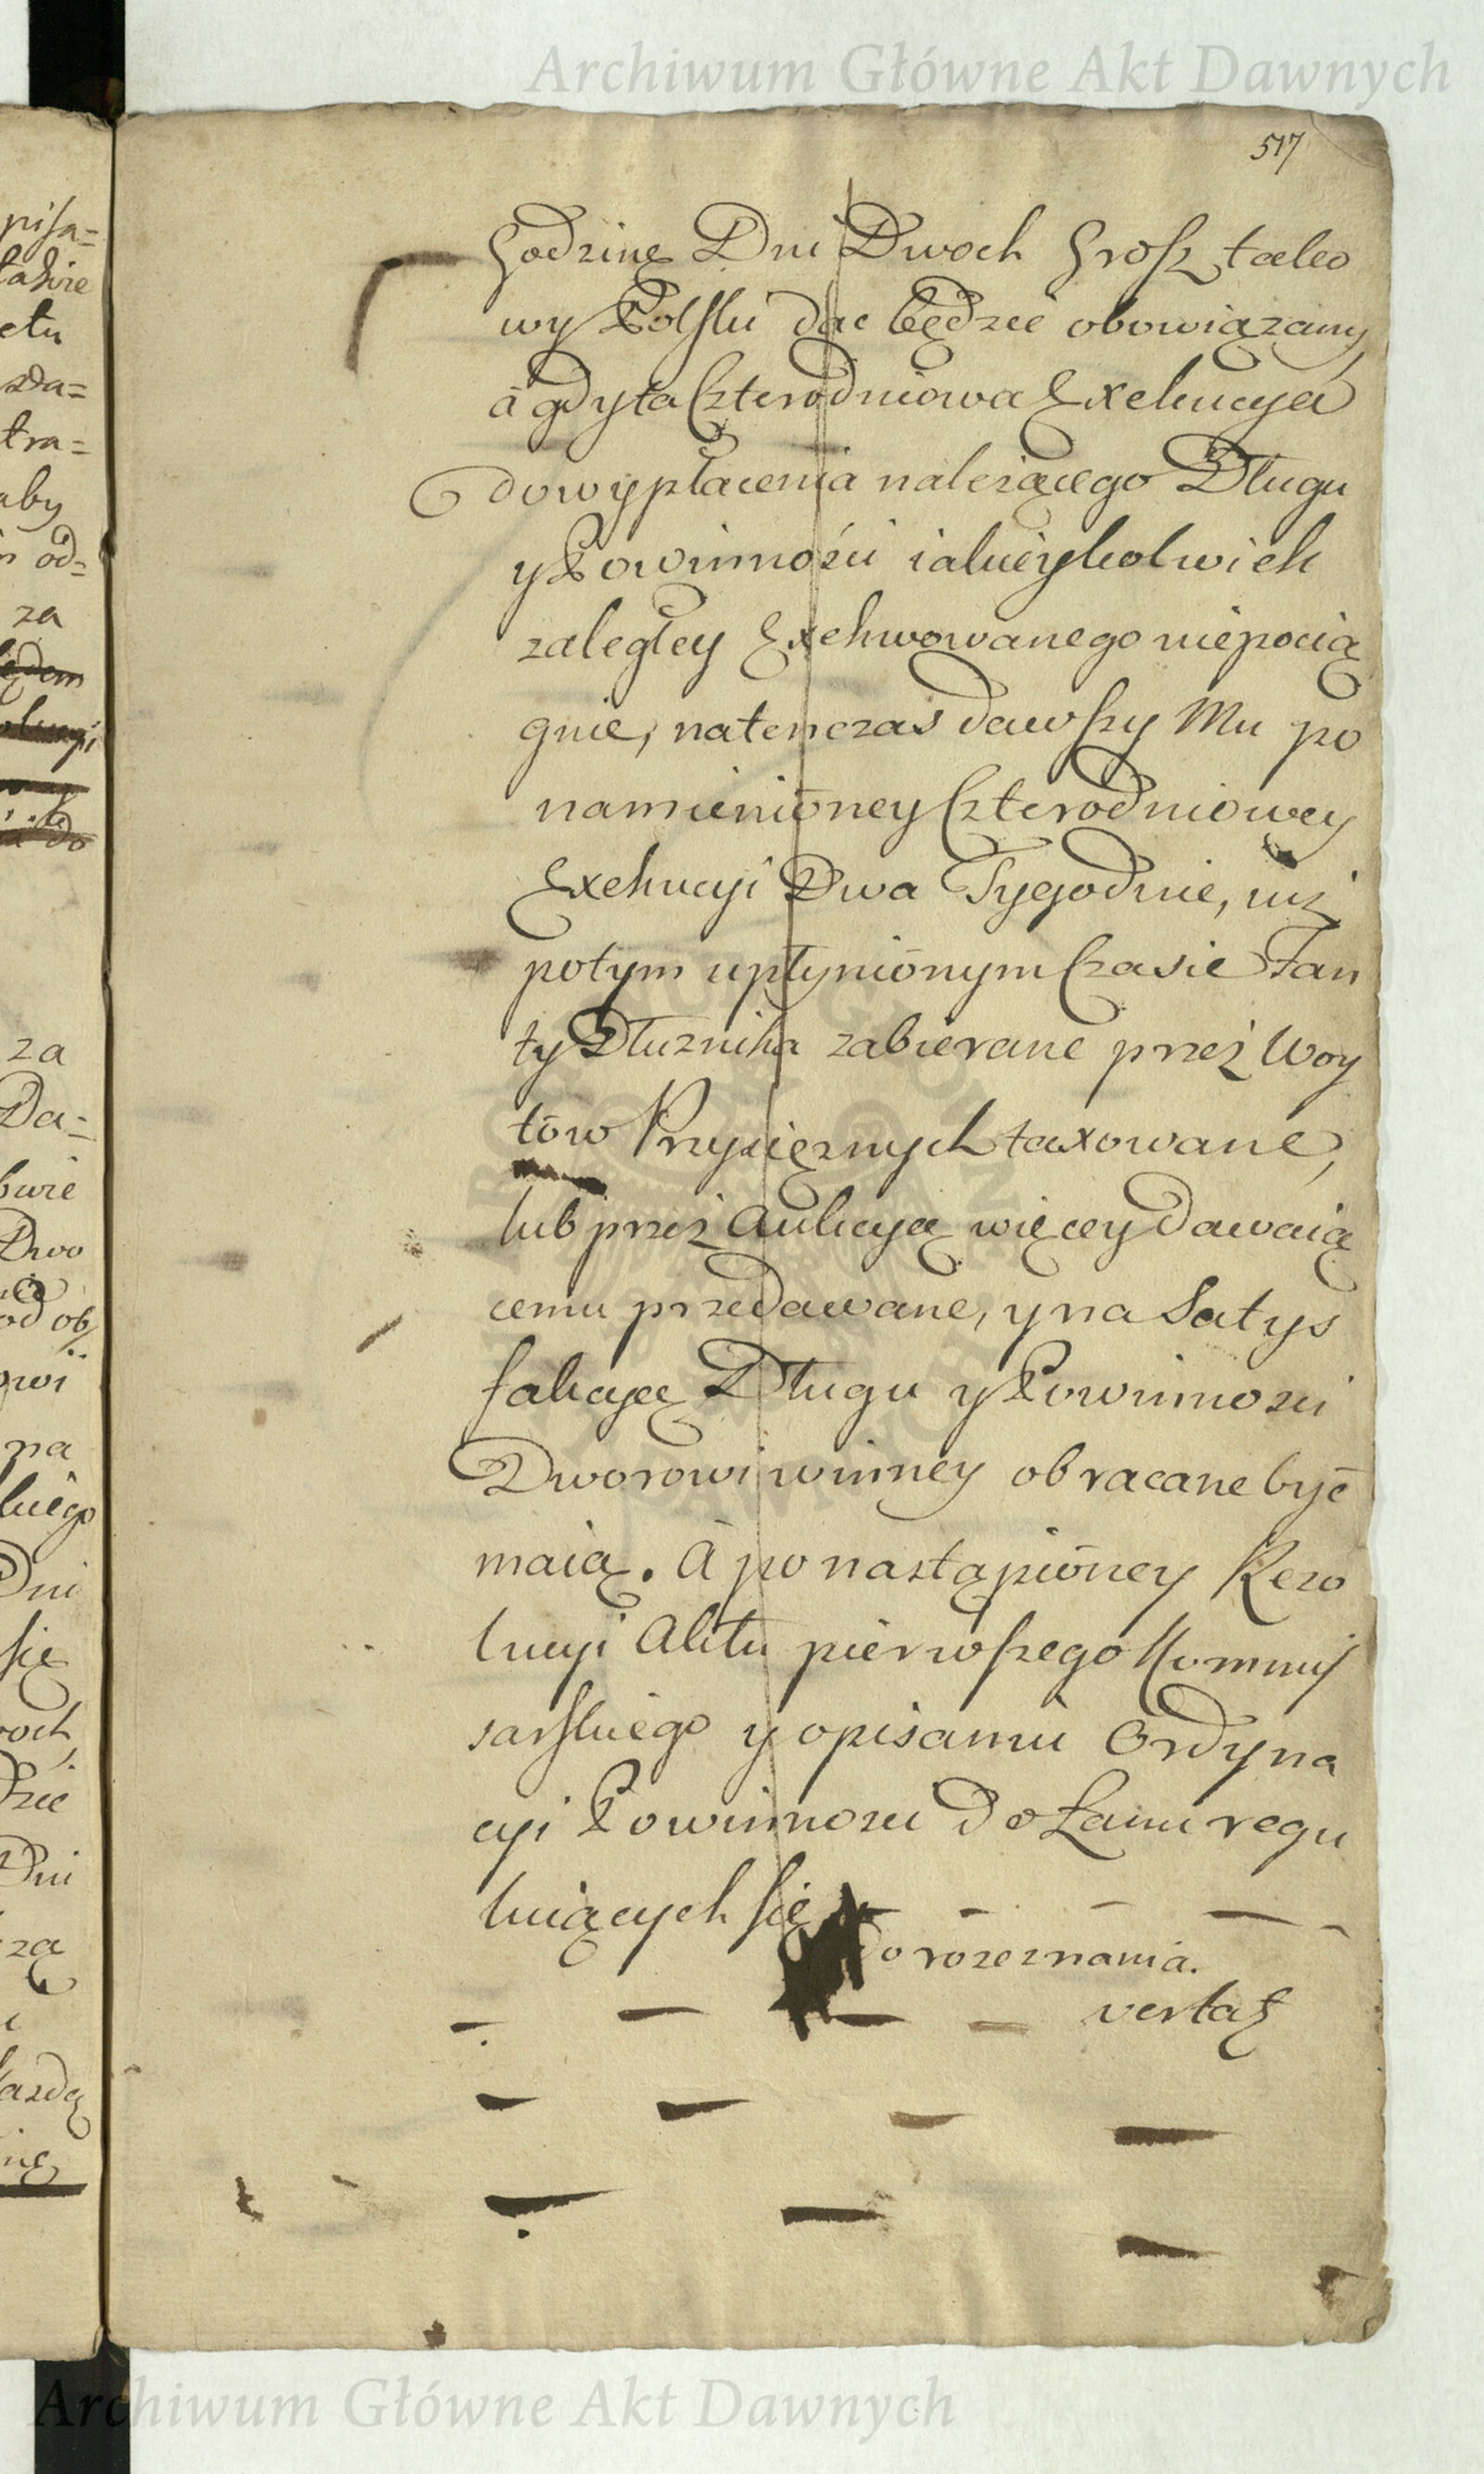 Archiwum Główne Akt Dawnych
517
Godzinę Dni Dwoch Grosz tale o
wy Polski dac będzie obowiązany
à gdy ta Czterodniowa Exekucya
do wypłacenia nalezącego Długu
y Powinnośći iakieykolwiek
zaległey Exekwowanego niepocią
gnie, natenczas dawszy Mu po
namienióney Czterodniowey
Exekucyi Dwa Tygodnie, iuż
potym upłyniónym Czasie Fan
ty Dłuznika zabierane przeż Woy
tów Przysięznych taxowane,
lub przez Aukcyą więcey dawaią
cemu przedawane, y na Satys
fakcyą Długu y Powinnosci
Dworowi winney obracane być
maią. A po nastąpióney Rezo
lucyi Aktu pierwszego Kommis
sarskiego y opisaniu Ordyna
cyi Powinnosci do Łanu regu
luiących się
do rozeznania.
vertatz
pisa=
takwie
etu
zda=
tra=
aby
od=
za
za
Da=
Dwo
od ob
owi
na
Dni
się
woch
Dni
zą
kazdą
nię
Archiwum Główne Akt Dawnych